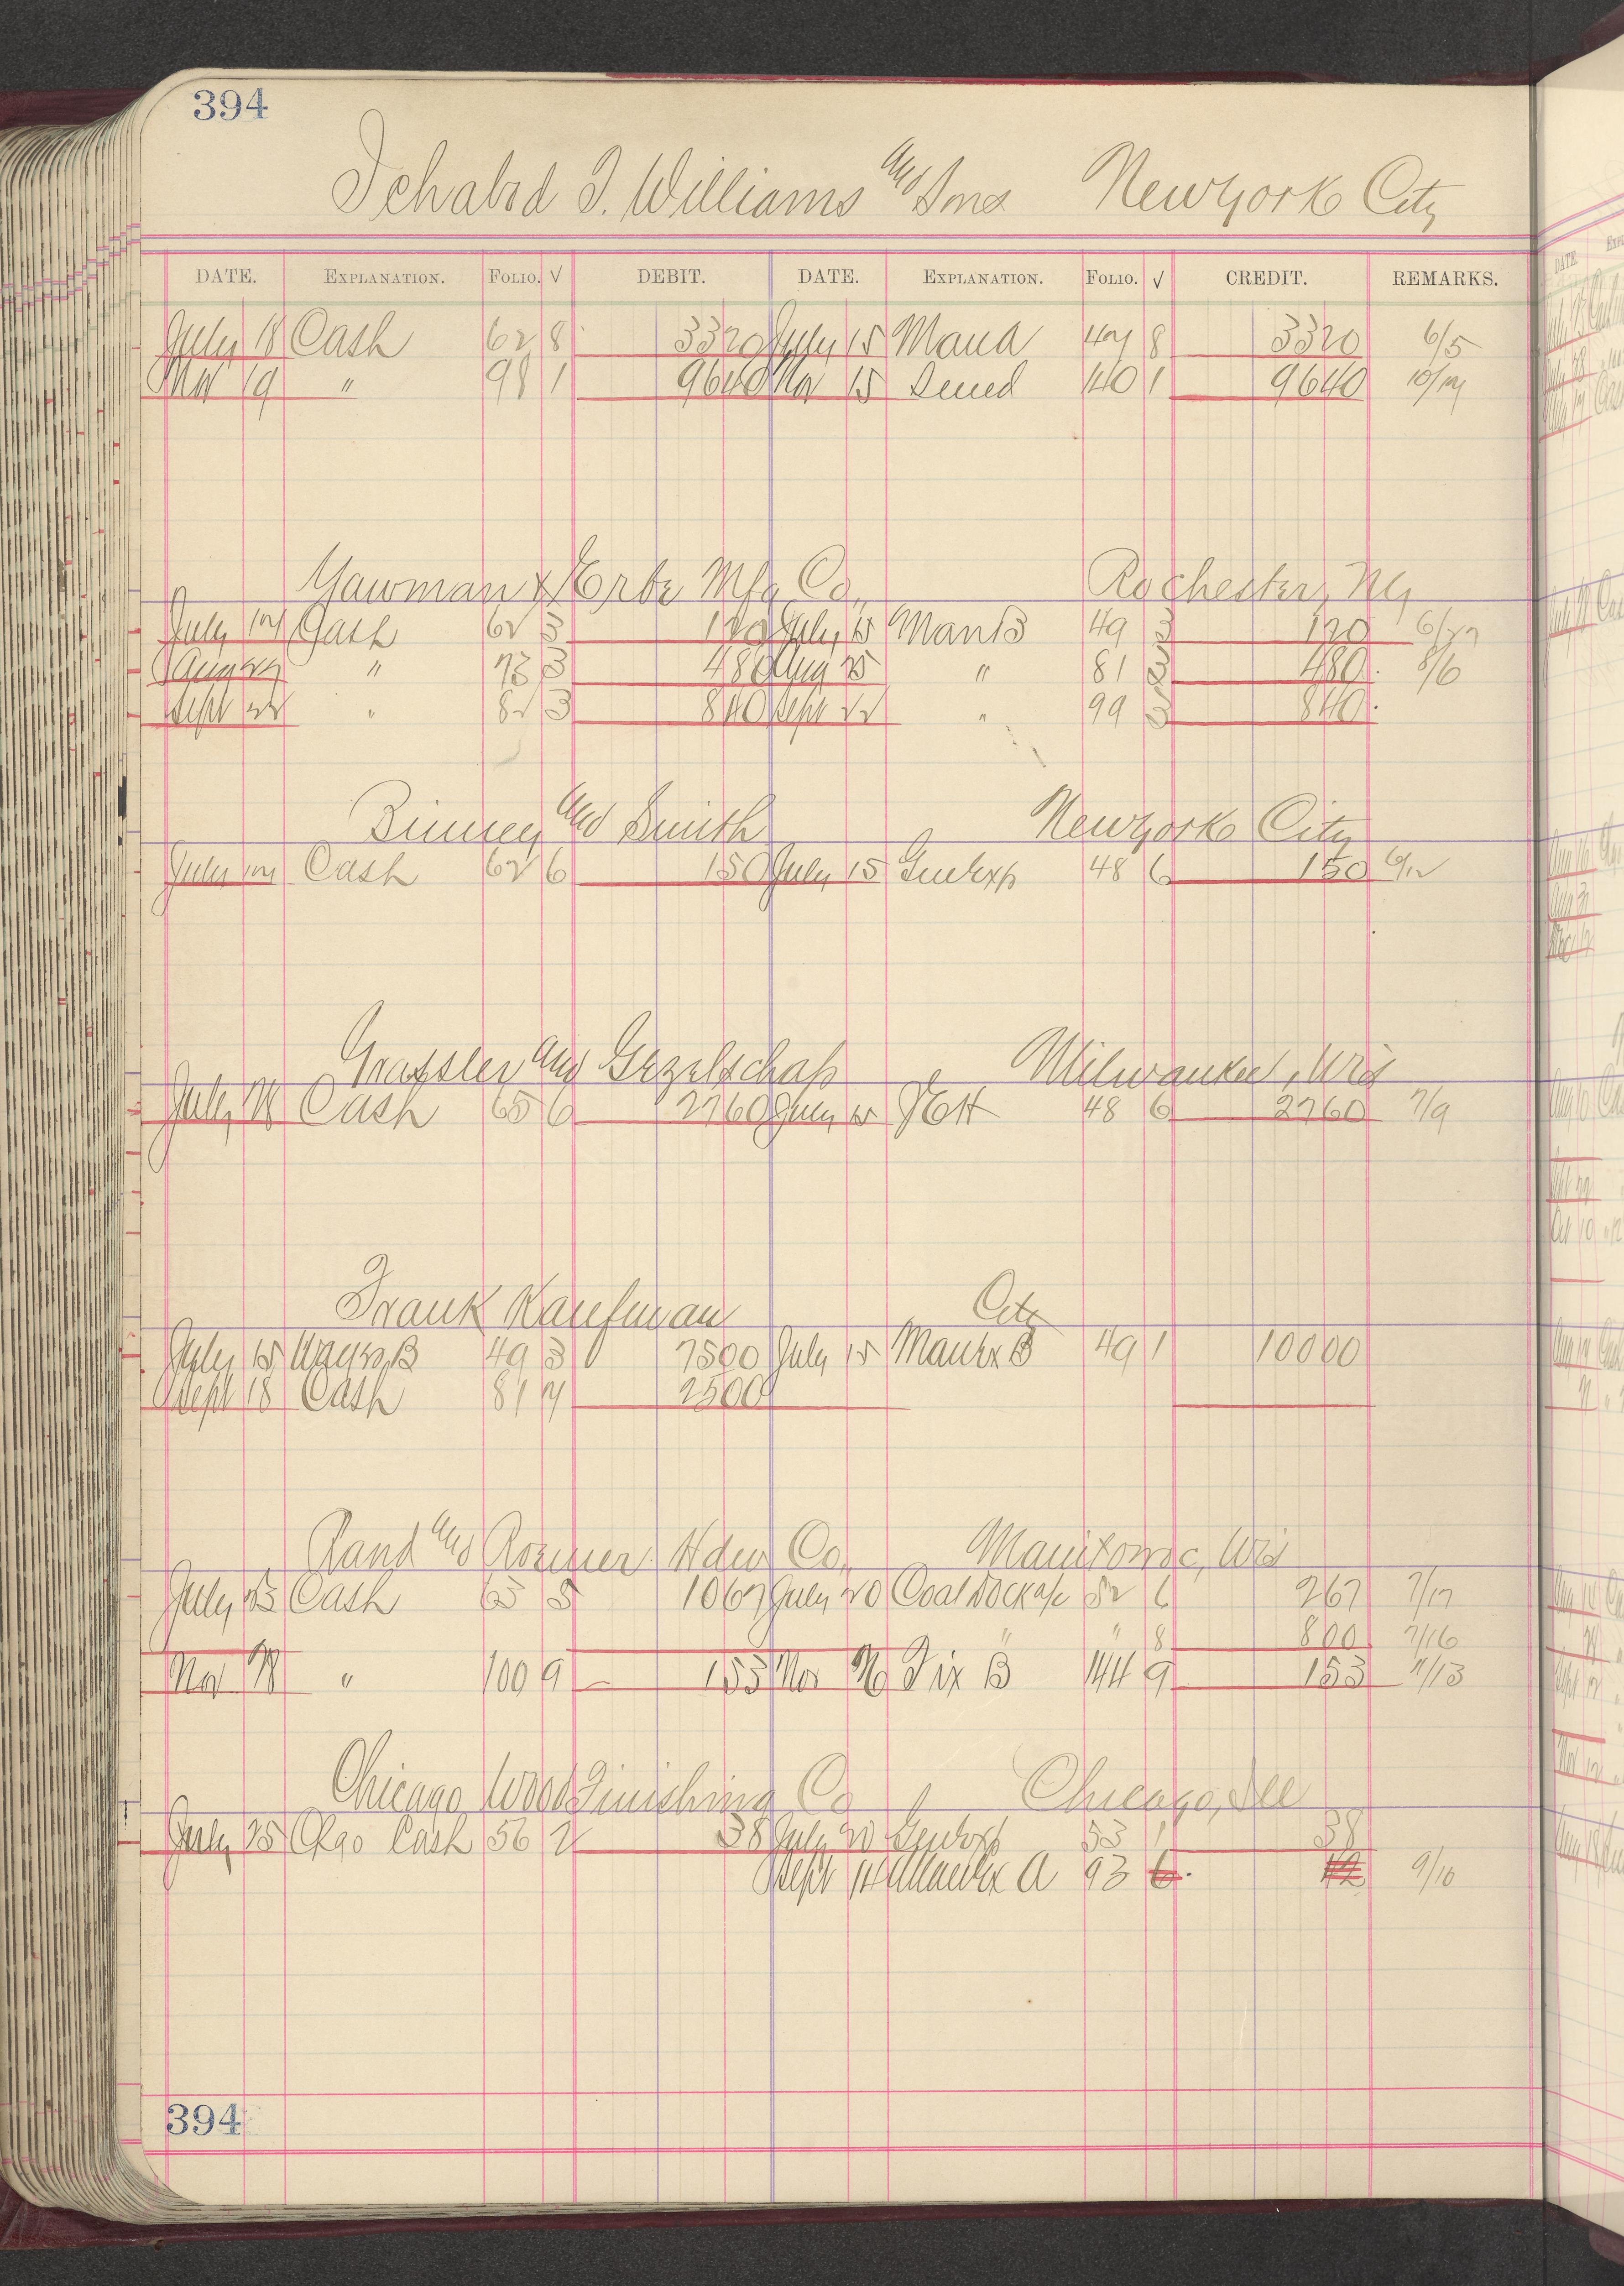 394
Ichabod T. Williams and Sons New York City
DATE. EXPLANATION. FOLIO. √ DEBIT. DATE. EXPLANATION. FOLIO. √ CREDIT. REMARKS.
July 18 Cash 62 8 3320 July 15 Mana 47 8 3320 6/5
Nov 9 " 98 1 9640 Nov 15 140 1 9640
Yawman & Erbe Mfg Co., Rochester, NY
July 17 Cash 62 3 120 July 15 Man B 49 3 120 6/27
Aug 27 " 73 3 480 Aug 25 " 81 3 480 8/6
Sept 22 " 82 3 840 Sept 22 " 99 3 840
Binney and Smith New York City
July 17 Cash 62 6 150 July 15 Gen Exp 48 6 150 6/12
Grassler and Gezelschap Milwaukee, Wis
July Cash 65 6 2760 July 15 48 6 2760 7/9
Frank Kaufman City
July 15 Wages B 49 3 7500 July 15 Man Ex B 49 1 10000
Sept 18 Cash 81 7 2500
Rand and Roemer Hdw Co., Manitowoc, Wis
July 25 Cash 65 5 1067 July 20 Coal Dock a/c 52 6 267 7/17
" " 8 800 7/16
Nov " 100 9 153 Nov Fix B 144 9 153 11/13
Chicago Wood Finishing Co Chicago, Ill
July 25 Chgo Cash 56 2 38 July 20 Gen Exp 53 1 38
Sept 14 Man Ex A 93 6 42 9/10
394